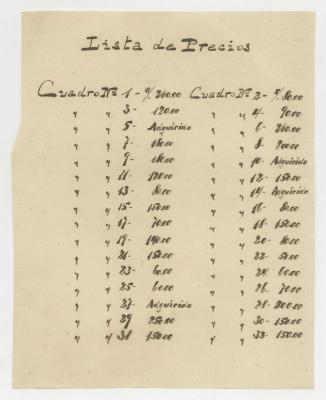 Lista de Precios
Cuadro Nº 1 - $/. 260.00 Cuadro Nº 2 - $/. 80.00
" " 3 - 120.00 " " 4 - 90.00
" " 5 - Adquirido " " 6 - 260.00
" " 7 - 180.00 " " 8 - 200.00
" " 9 - 180.00 " " 10 - Adquirido
" " 11 - 120.00 " " 12 - 150.00
" " 13 - 80.00 " " 14 - Adquirido
" " 15 - 150.00 " " 16 - 80.00
" " 17 - 70.00 " " 18 - 150.00
" " 19 - 140.00 " " 20 - 80.00
" " 21 - 150.00 " " 22 - 50.00
" " 23 - 60.00 " " 24 - 60.00
" " 25 - 60.00 " " 26 - 70.00
" " 27 - Adquirido " " 28 - 200.00
" " 29 250.00 " " 30 - 150.00
" " 31 150.00 " " 32 - 150.00